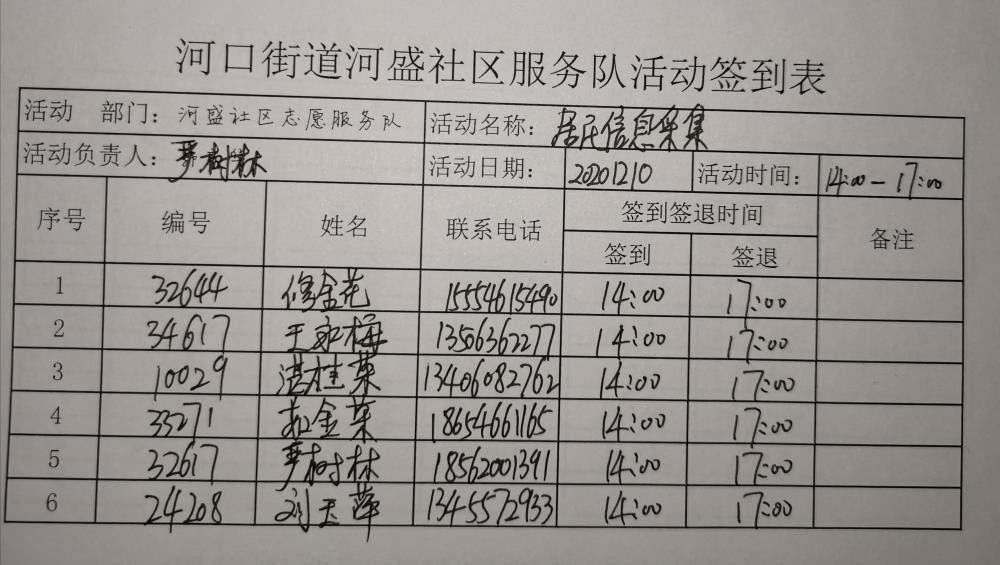 河口街道河盛社区服务队活动签到表
活动 部门：河盛社区志愿服务队 活动名称：居民信息采集
活动负责人：严树林 活动日期：20201210 活动时间：14:00-17:00
序号 编号 姓名 联系电话 签到签退时间 备注
签到 签退
1 32644 修金花 15554615490 14:00 17:00
2 34617 王永梅 13506362277 14:00 17:00
3 10029 桂菜 13406082762 14:00 17:00
4 33271 金菜 18654661165 14:00 17:00
5 32617 严树林 18562001391 14:00 17:00
6 24208 刘玉萍 1345572933 14:00 17:00